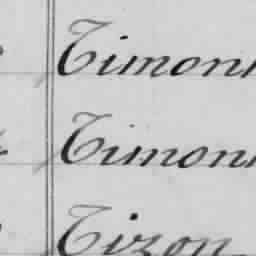 Timon
Timon
Tizon